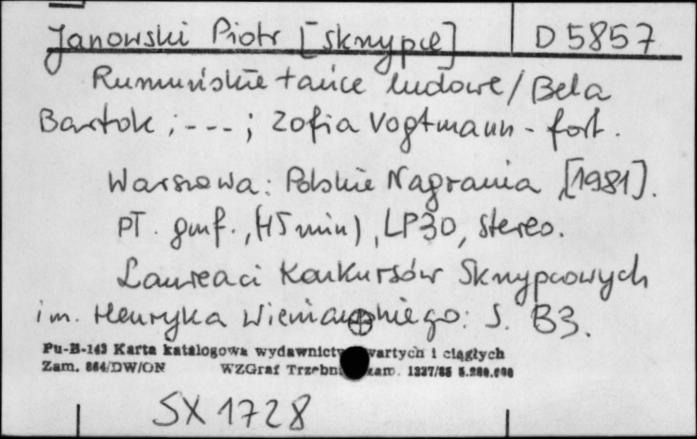 Janowski Piotr [skrzypce] D 5857
Rumuńskie tańce ludowe / Bela
Bartok ; - - - ; Zofia Vogtmann - fort.
Warszawa: Polskie Nagrania [1981].
PŁ. gmf., (45 min), LP30, stereo.
Laureaci Konkursów Skrzypcowych
im. Henryka Wieniawskiego: S. B3.
Pu-B-143 Karta katalogowa wydawnictw zwartych i ciągłych
Zam. 864/DW/ON WZGraf Trzebn zam. 1337/85
SX 1728